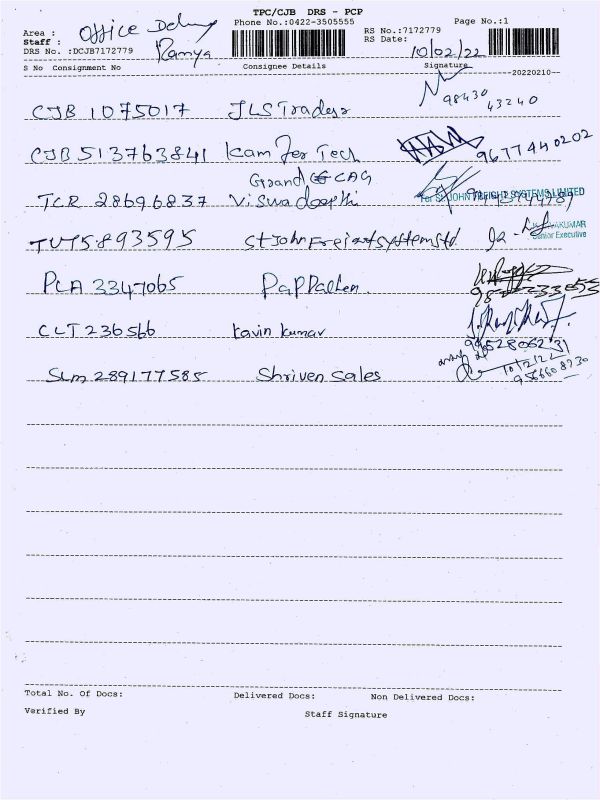 TPC/CJB DRS - PCP
Phone No.:0422-3505555 Page No.:1
Area : Office Delivery RS No.:7172779
Staff : Ramya RS Date: 10/02/22
DRS No. :DCJB7172779
S No Consignment No Consignee Details Signature
20220210
CJB 1075017 JLS Traders 98430 43240
CJB 513763841 Kam Jer Tech 9677440202
Grand CAG
TCR 28696837 Viswadeepthi For St. JOHN FREIGHT SYSTEMS LIMITED
TUT5893595 St John Freight systems ltd
Senior Executive
PLA 3347065
CLT 236566 Kavin Kumar
9952806231
SLM 289177585 Shriven Sales 10/2/22
9566608730
Total No. Of Docs: Delivered Docs: Non Delivered Docs:
Verified By Staff Signature